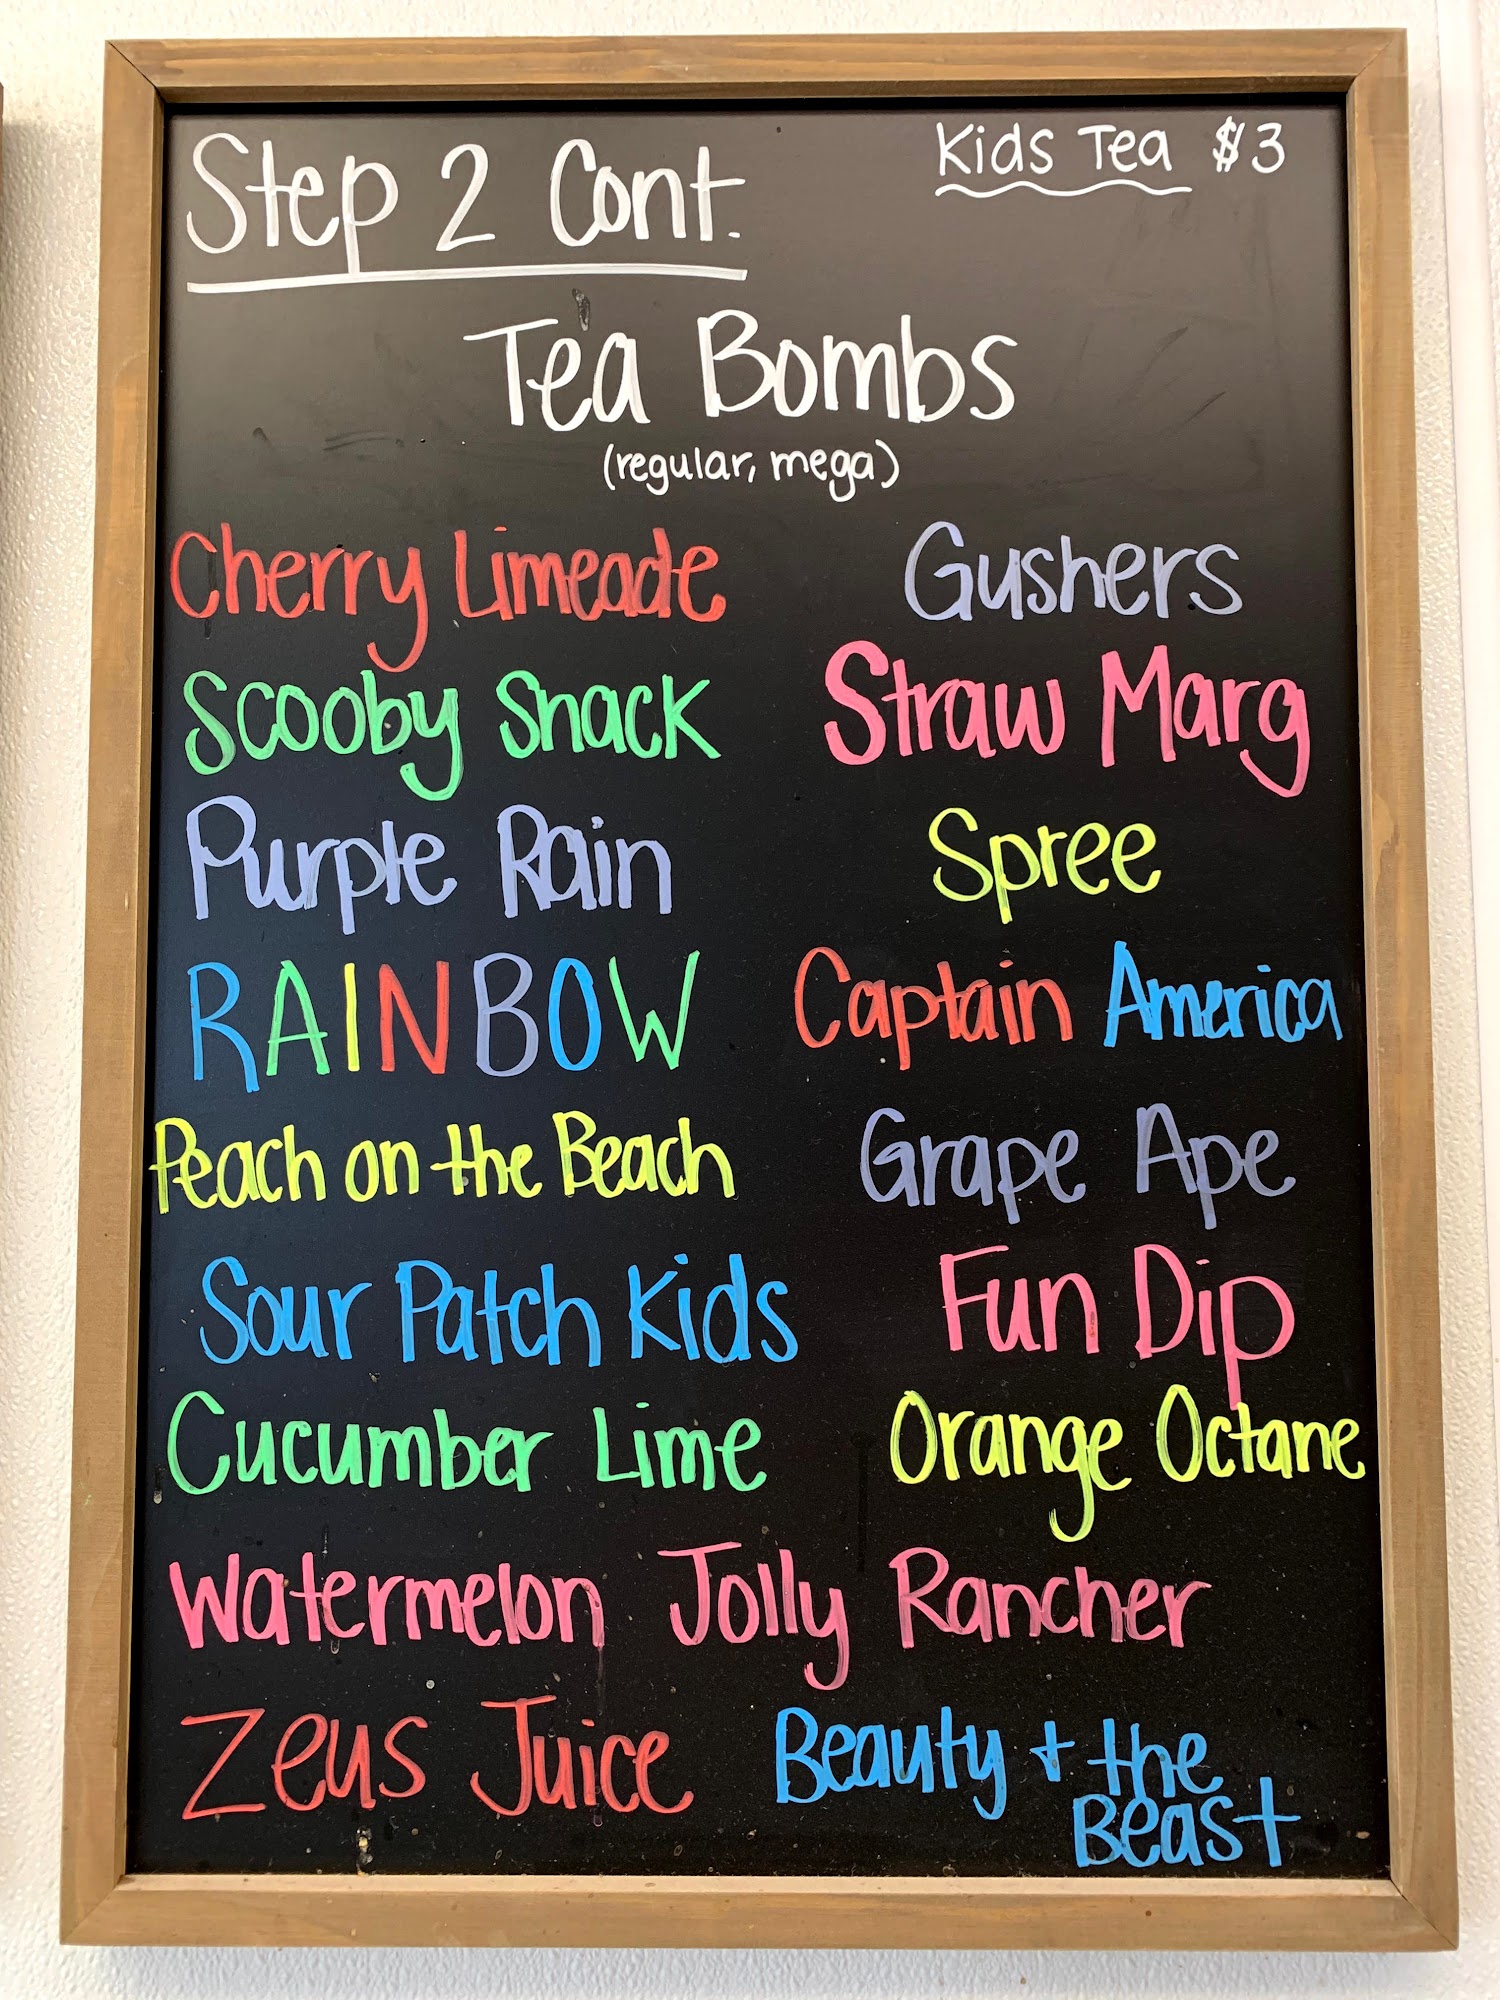 Step 2 Cont.
Kids Tea $3
Tea Bombs
(regular, mega)
Cherry Limeade
Gushers
Scooby Snack
Straw Marg
Purple Rain
Spree
RAINBOW
Captain America
Peach on the Beach
Grape Ape
Sour Patch Kids
Fun Dip
Cucumber Lime
Orange Octane
Watermelon Jolly Rancher
Zeus Juice
Beauty + the
Beast